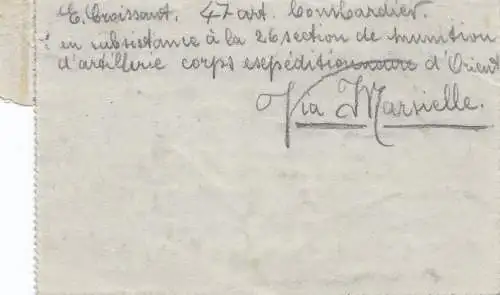 E. Croissant. 47 art. Bombardier.
en subsistance à la 26 section de munition
d'artillerie corps esepéditionnaire d'Orient
Via Marsielle.